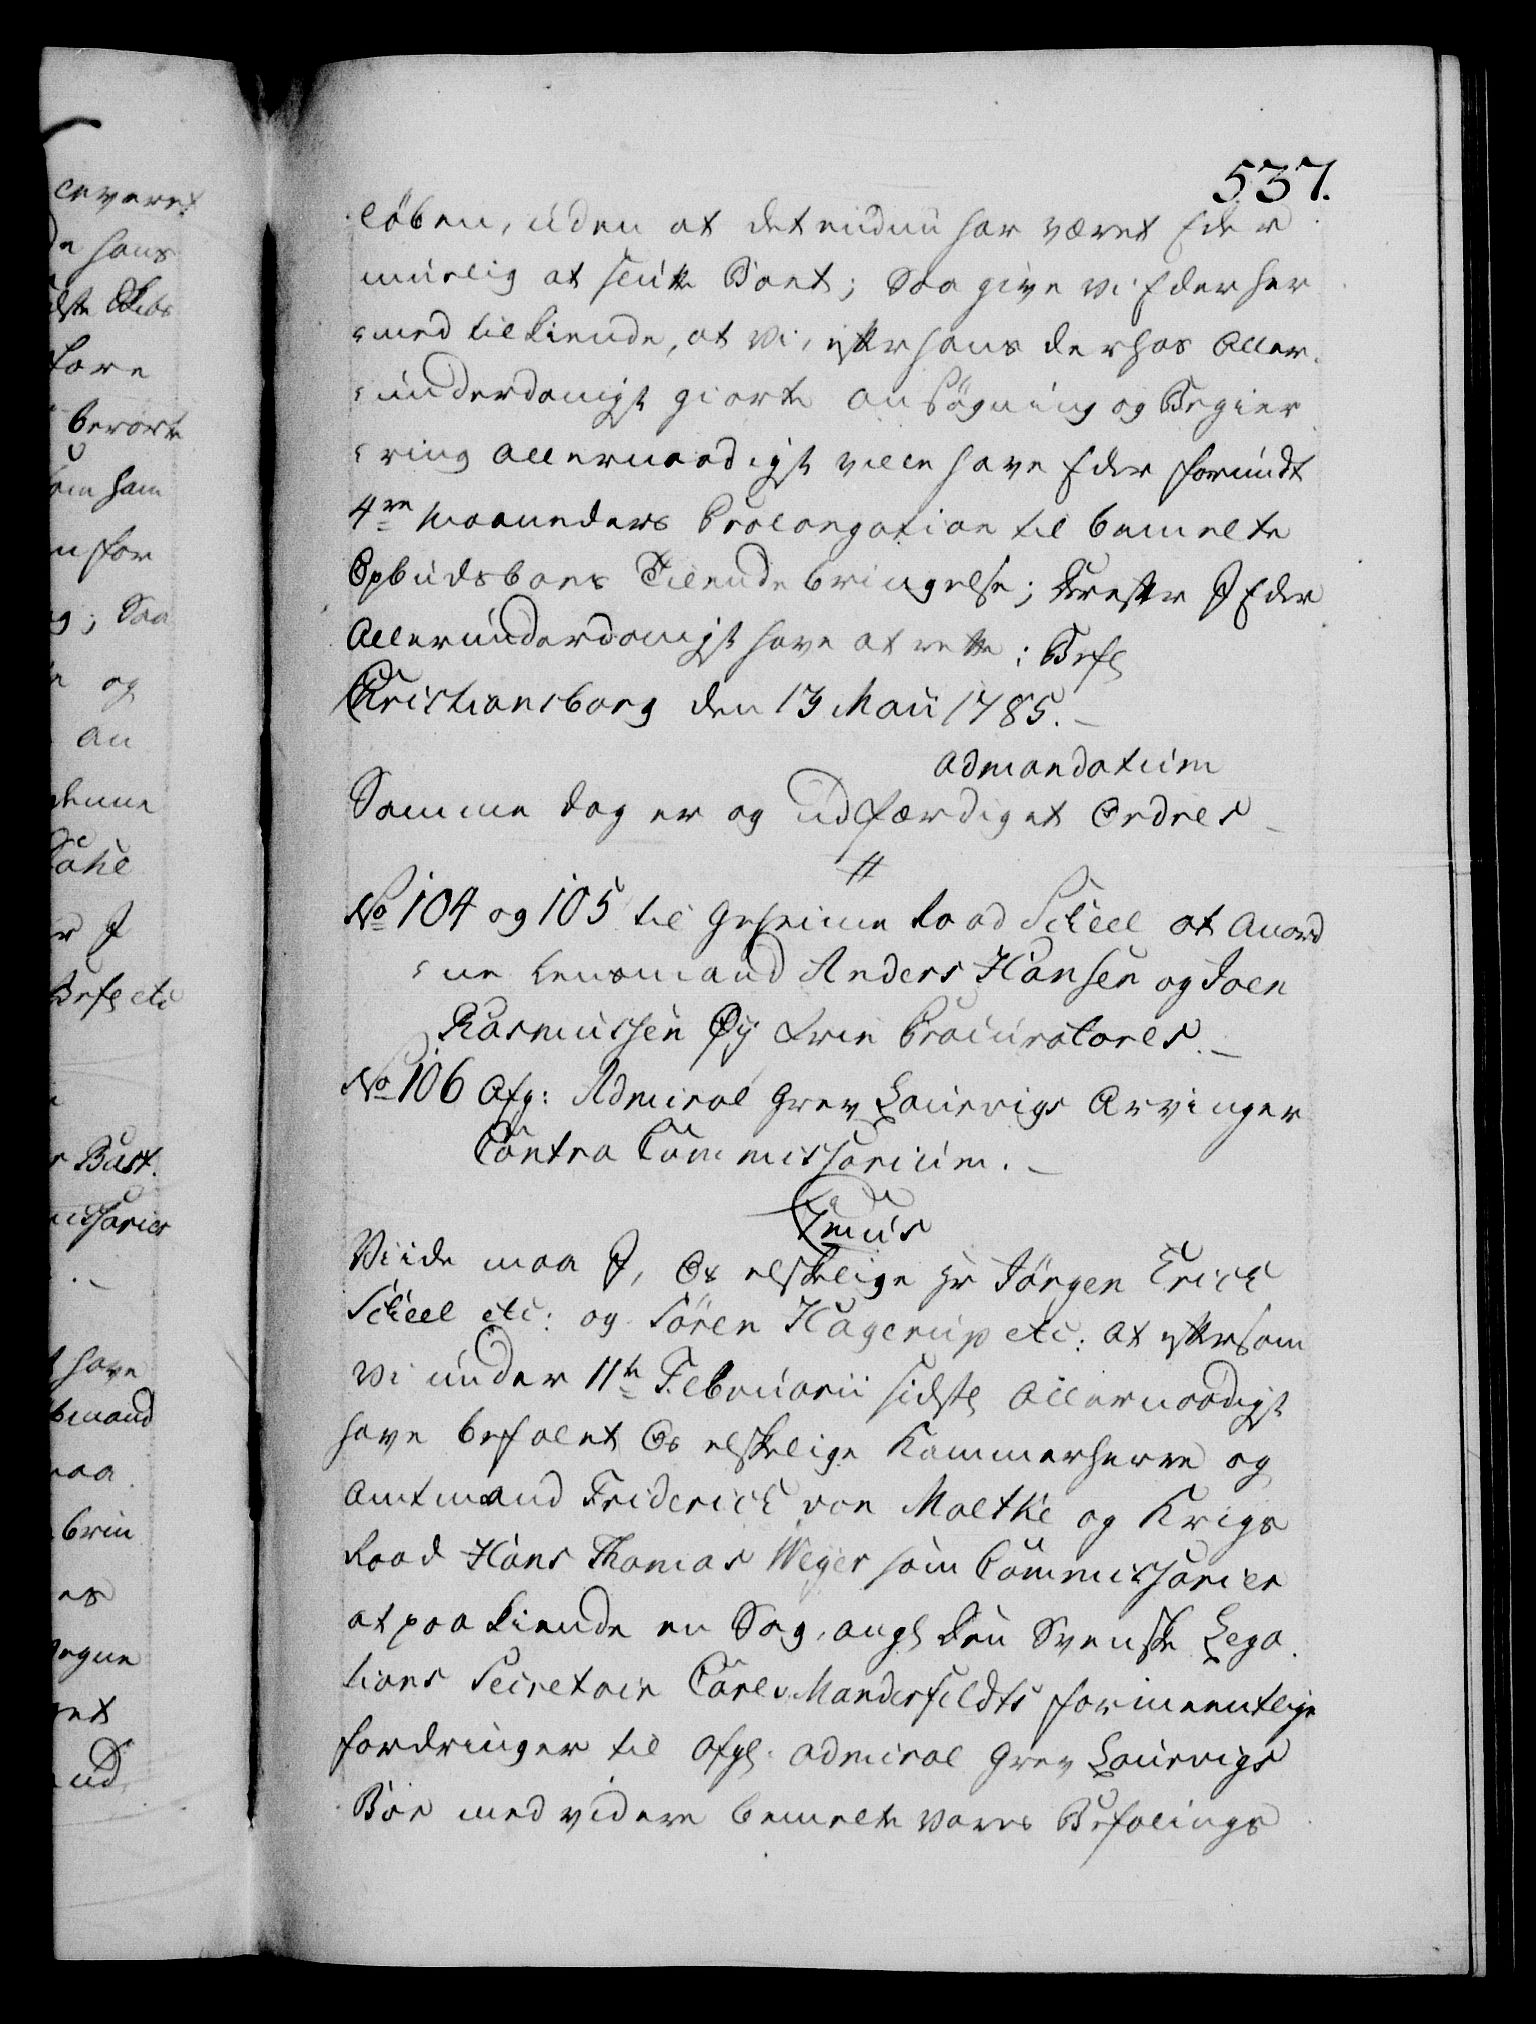 537.
løben, uden at det endnu har været Eder
muelig at slutte Boet; Saa give vi Eder her
=med tilkiende, at Vi, efter hans derhos Aller
=underdanigst giorte ansøgning og Begier
=ring Allernaadigst ville have Eder forundt
4re Maaneders Prolongation til bemelte
Opbudsboes Tilendebringelse; Derefter I Eder
Allerunderdanigst have at rette; Befl
Christiansborg den 13 Maii 1785.
admandatum
Samme dag er og udfærdiget Ordres
//
No 104 og 105 til Geheime Raad Scheel at anord
=ne Lensmand Anders Hansen og Joen
Rasmussen Øy Frie Procuratores.
No 106 Afg: Admiral Grev Laurvigs Arvinger
Contra Commissarium.
C7mus
Viide maa I, Os elskelige Hr Jørgen Erich
Scheel etc: og Søren Hagerup etc: at eftersom
Vi under 11te Februarii sidstl Allernaadigst
have befalet Os elskelige Kammerherre og
Amtmand Friderich von Moltke og Krigs
Raad Hans Thomas Weyer som Commissarier
at paakiende en Sag, angl den Svenske Lega
tions Secretair Carl v. Manderfeldts formeentlige
fordringer til afgl. admiral Grev Laurvigs
Boe med videre bemelte vores Befalings